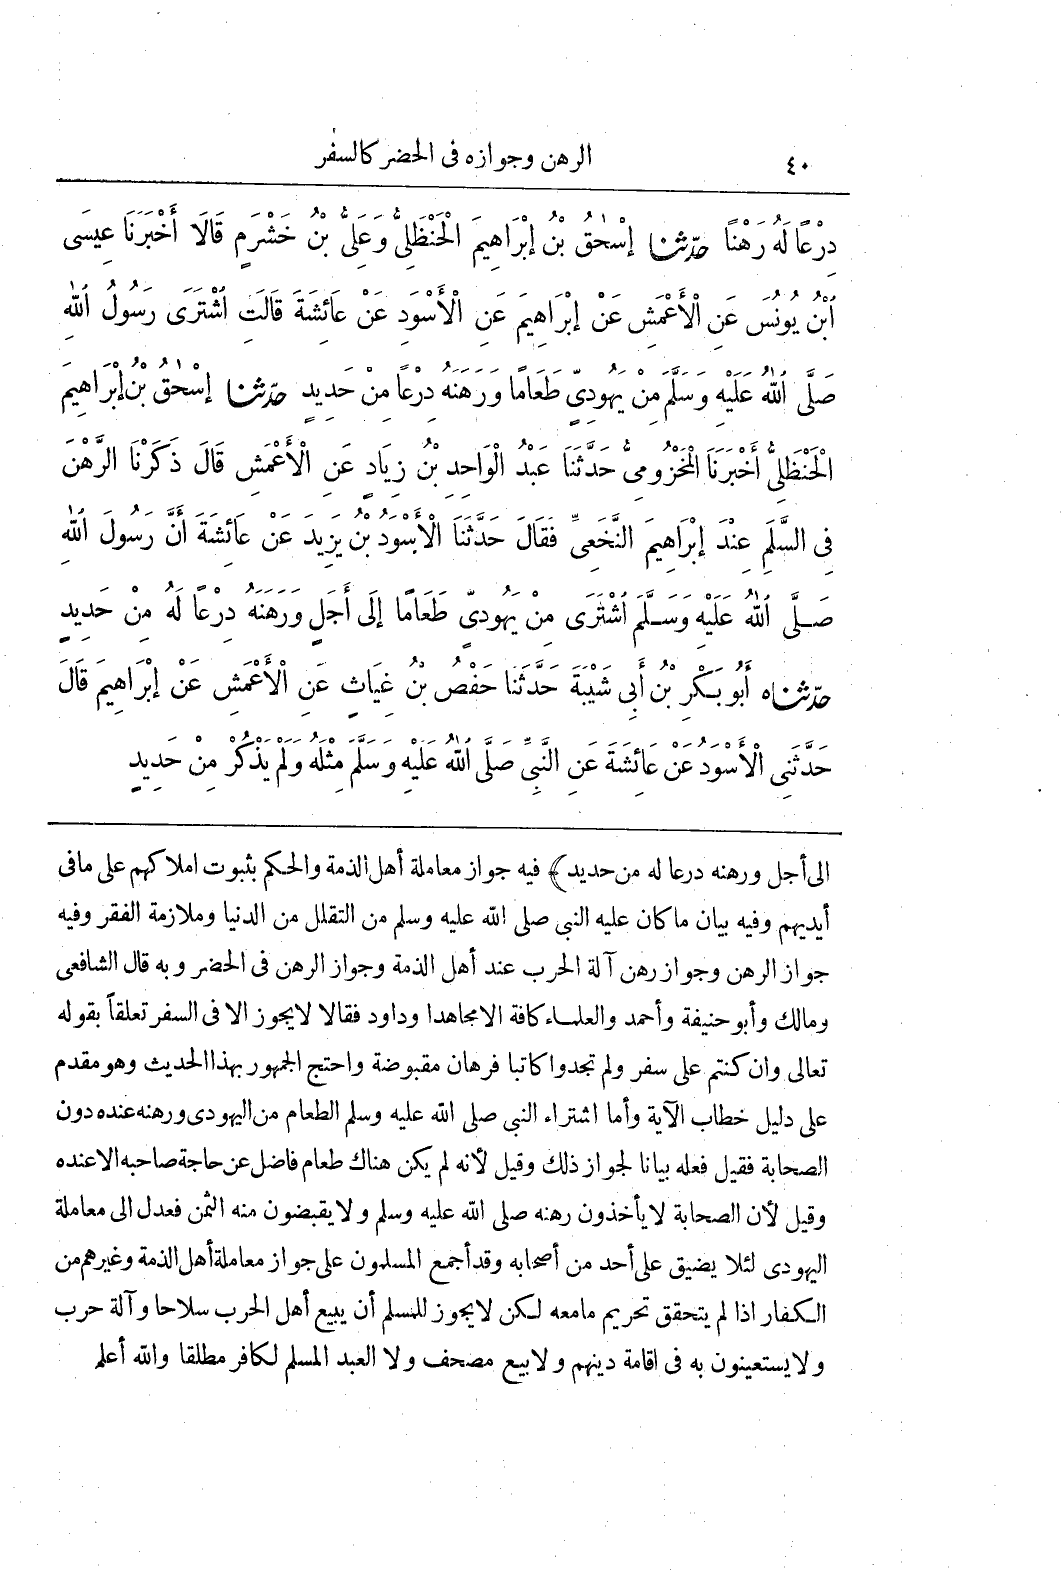 ٤٠ الرهن وجوازه فى الحضر كالسفر
دِرْعًا لَهُ رَهْنًا حدّثنا إِسْحٰقُ بْنُ إِبْرَاهِيمَ الْحَنْظَلِىُّ وَعَلِىُّ بْنُ خَشْرَمٍ قَالَا أَخْبَرَنَا عِيسَى
ابْنُ يُونُسَ عَنِ الْأَعْمَشِ عَنْ إِبْرَاهِيمَ عَنِ الْأَسْوَدِ عَنْ عَائِشَةَ قَالَتِ اشْتَرَى رَسُولُ اللهِ
صَلَّى اللهُ عَلَيْهِ وَسَلَّمَ مِنْ يَهُودِىٍّ طَعَامًا وَرَهَنَهُ دِرْعًا مِنْ حَدِيدٍ حدّثنا إِسْحٰقُ بْنُ إِبْرَاهِيمَ
الْحَنْظَلِىُّ أَخْبَرَنَا الْمَخْزُومِىُّ حَدَّثَنَا عَبْدُ الْوَاحِدِ بْنُ زِيَادٍ عَنِ الْأَعْمَشِ قَالَ ذَكَرْنَا الرَّهْنَ
فِى السَّلَمِ عِنْدَ إِبْرَاهِيمَ النَّخَعِىِّ فَقَالَ حَدَّثَنَا الْأَسْوَدُ بْنُ يَزِيدَ عَنْ عَائِشَةَ أَنَّ رَسُولَ اللهِ
صَلَّى اللهُ عَلَيْهِ وَسَلَّمَ اشْتَرَى مِنْ يَهُودِىٍّ طَعَامًا إِلَى أَجَلٍ وَرَهَنَهُ دِرْعًا لَهُ مِنْ حَدِيدٍ
حدّثناه أَبُو بَكْرِ بْنُ أَبِى شَيْبَةَ حَدَّثَنَا حَفْصُ بْنُ غِيَاثٍ عَنِ الْأَعْمَشِ عَنْ إِبْرَاهِيمَ قَالَ
حَدَّثَنِى الْأَسْوَدُ عَنْ عَائِشَةَ عَنِ النَّبِىِّ صَلَّى اللهُ عَلَيْهِ وَسَلَّمَ مِثْلَهُ وَلَمْ يَذْكُرْ مِنْ حَدِيدٍ
الى أجل ورهنه درعا له من حديد﴾ فيه جواز معاملة أهل الذمة والحكم بثبوت املاكهم على مافى
أيديهم وفيه بيان ماكان عليه النبى صلى الله عليه وسلم من التقلل من الدنيا وملازمة الفقر وفيه
جواز الرهن وجواز رهن آلة الحرب عند أهل الذمة وجواز الرهن فى الحضر وبه قال الشافعى
ومالك وأبو حنيفة وأحمد والعلماء كافة الا مجاهدا وداود فقالا لايجوز الا فى السفر تعلقاً بقوله
تعالى وان كنتم على سفر ولم تجدوا كاتبا فرهان مقبوضة واحتج الجمهور بهذا الحديث وهو مقدم
على دليل خطاب الآية وأما اشتراء النبى صلى الله عليه وسلم الطعام من اليهودى ورهنه عنده دون
الصحابة فقيل فعله بيانا لجواز ذلك وقيل لأنه لم يكن هناك طعام فاضل عن حاجة صاحبه الا عنده
وقيل لأن الصحابة لا يأخذون رهنه صلى الله عليه وسلم ولا يقبضون منه الثمن فعدل الى معاملة
اليهودى لئلا يضيق على أحد من أصحابه وقد أجمع المسلمون على جواز معاملة أهل الذمة وغيرهم من
الكفار اذا لم يتحقق تحريم مامعه لكن لايجوز للمسلم أن يبيع أهل الحرب سلاحا وآلة حرب
ولا يستعينون به فى اقامة دينهم ولا بيع مصحف ولا العبد المسلم لكافر مطلقا والله أعلم